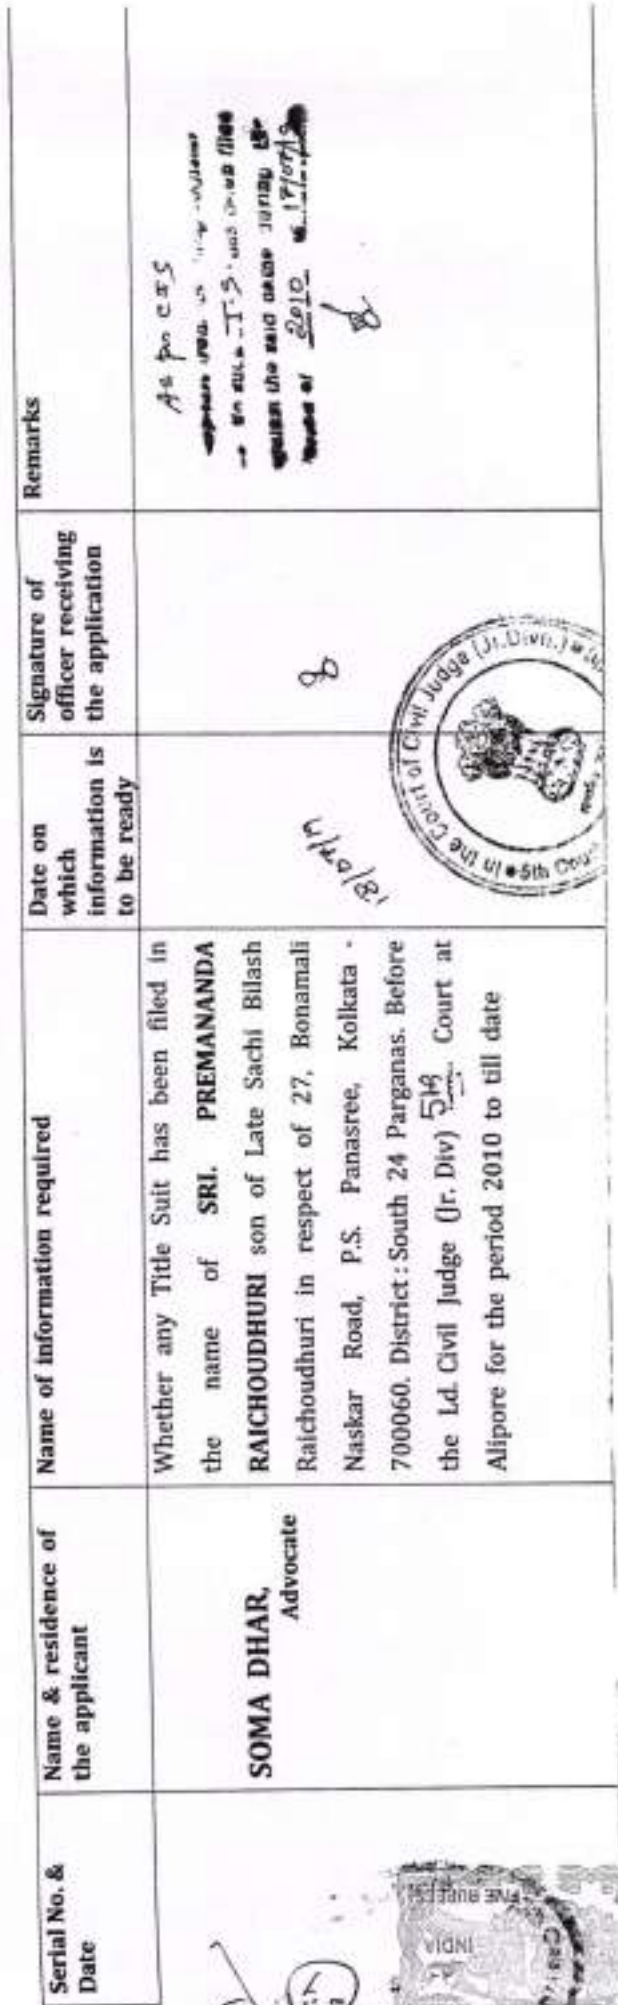 Serial No. &
Date
Name & residence of
the applicant
Name of information required
Date on
which
information is
to be ready
Signature of
officer receiving
the application
Remarks
SOMA DHAR,
Advocate
Whether any Title Suit has been filed in
the name of SRI. PREMANANDA
RAICHOUDHURI son of Late Sachi Bilash
Raichoudhuri in respect of 27, Bonamali
Naskar Road, P.S. Panasree, Kolkata -
700060. District : South 24 Parganas. Before
the Ld. Civil Judge (Jr. Div) 5th Court at
Alipore for the period 2010 to till date
In the Court of Civil Judge (Jr.Divn.)
5th
As per CIS
T.S. was filed
the said
2010
FIVE RUPEES
INDIA